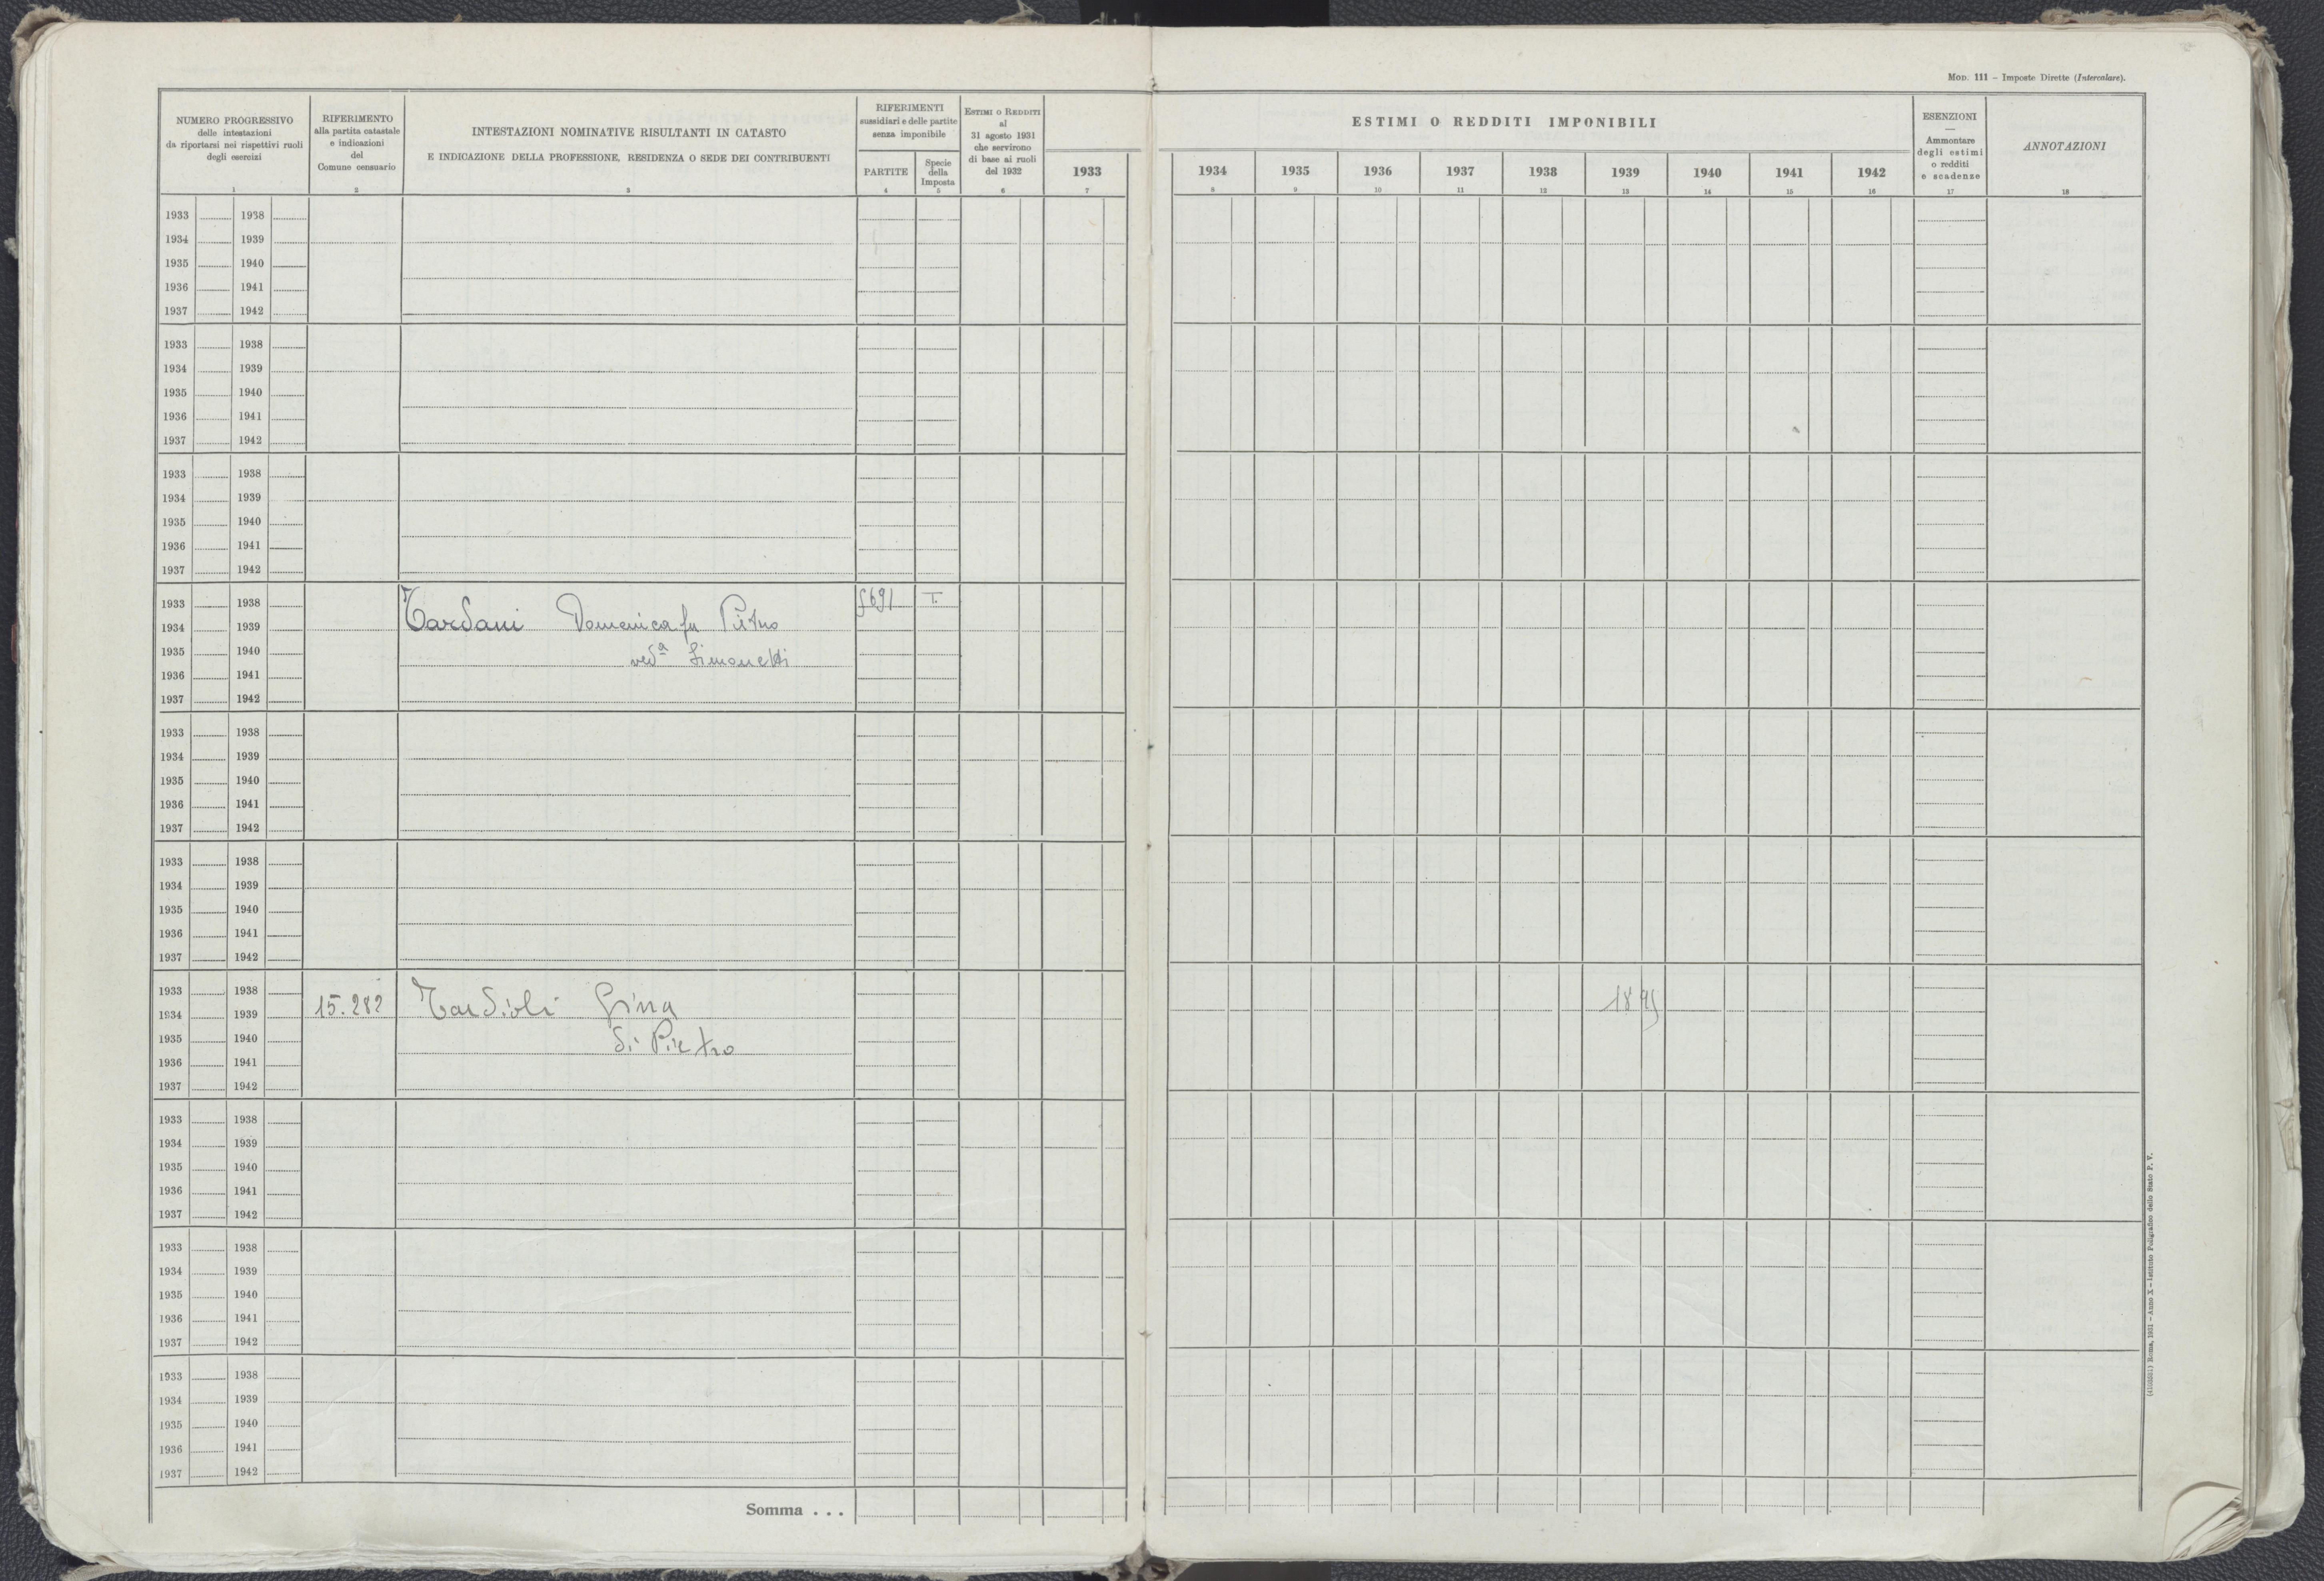 MOD. 111 – Imposte Dirette (Intercalare).
NUMERO PROGRESSIVO
delle intestazioni
da riportarsi nei rispettivi ruoli
degli esercizi
1
RIFERIMENTO
alla partita catastale
e indicazioni
del
Comune censuario
2
INTESTAZIONI NOMINATIVE RISULTANTI IN CATASTO
E INDICAZIONE DELLA PROFESSIONE, RESIDENZA O SEDE DEI CONTRIBUENTI
3
RIFERIMENTI
sussidiari e delle partite
senza imponibile
PARTITE
4
Specie
della
Imposta
5
ESTIMI O REDDITI
al
31 agosto 1931
che servirono
di base ai ruoli
del 1932
6
1933
7
ESTIMI O REDDITI IMPONIBILI
1934 1935 1936 1937 1938 1939 1940 1941 1942
8 9 10 11 12 13 14 15 16
ESENZIONI
—
Ammontare
degli estimi
o redditi
e scadenze
17
ANNOTAZIONI
18
1933 1938
1934 1939
1935 1940
1936 1941
1937 1942
1933 1938
1934 1939
1935 1940
1936 1941
1937 1942
1933 1938
1934 1939
1935 1940
1936 1941
1937 1942
1933 1938 T.
1934 1939 Tardani Domenica fu Pietro
1935 1940 ved.a Simonetti
1936 1941
1937 1942
1933 1938
1934 1939
1935 1940
1936 1941
1937 1942
1933 1938
1934 1939
1935 1940
1936 1941
1937 1942
1933 1938
1934 1939 15.282 Tardioli Gina
1935 1940 di Pietro
1936 1941
1937 1942
1933 1938
1934 1939
1935 1940
1936 1941
1937 1942
1933 1938
1934 1939
1935 1940
1936 1941
1937 1942
1933 1938
1934 1939
1935 1940
1936 1941
1937 1942
Somma . . .
Roma, 1931 – Anno X – Istituto Poligrafico dello Stato P. V.